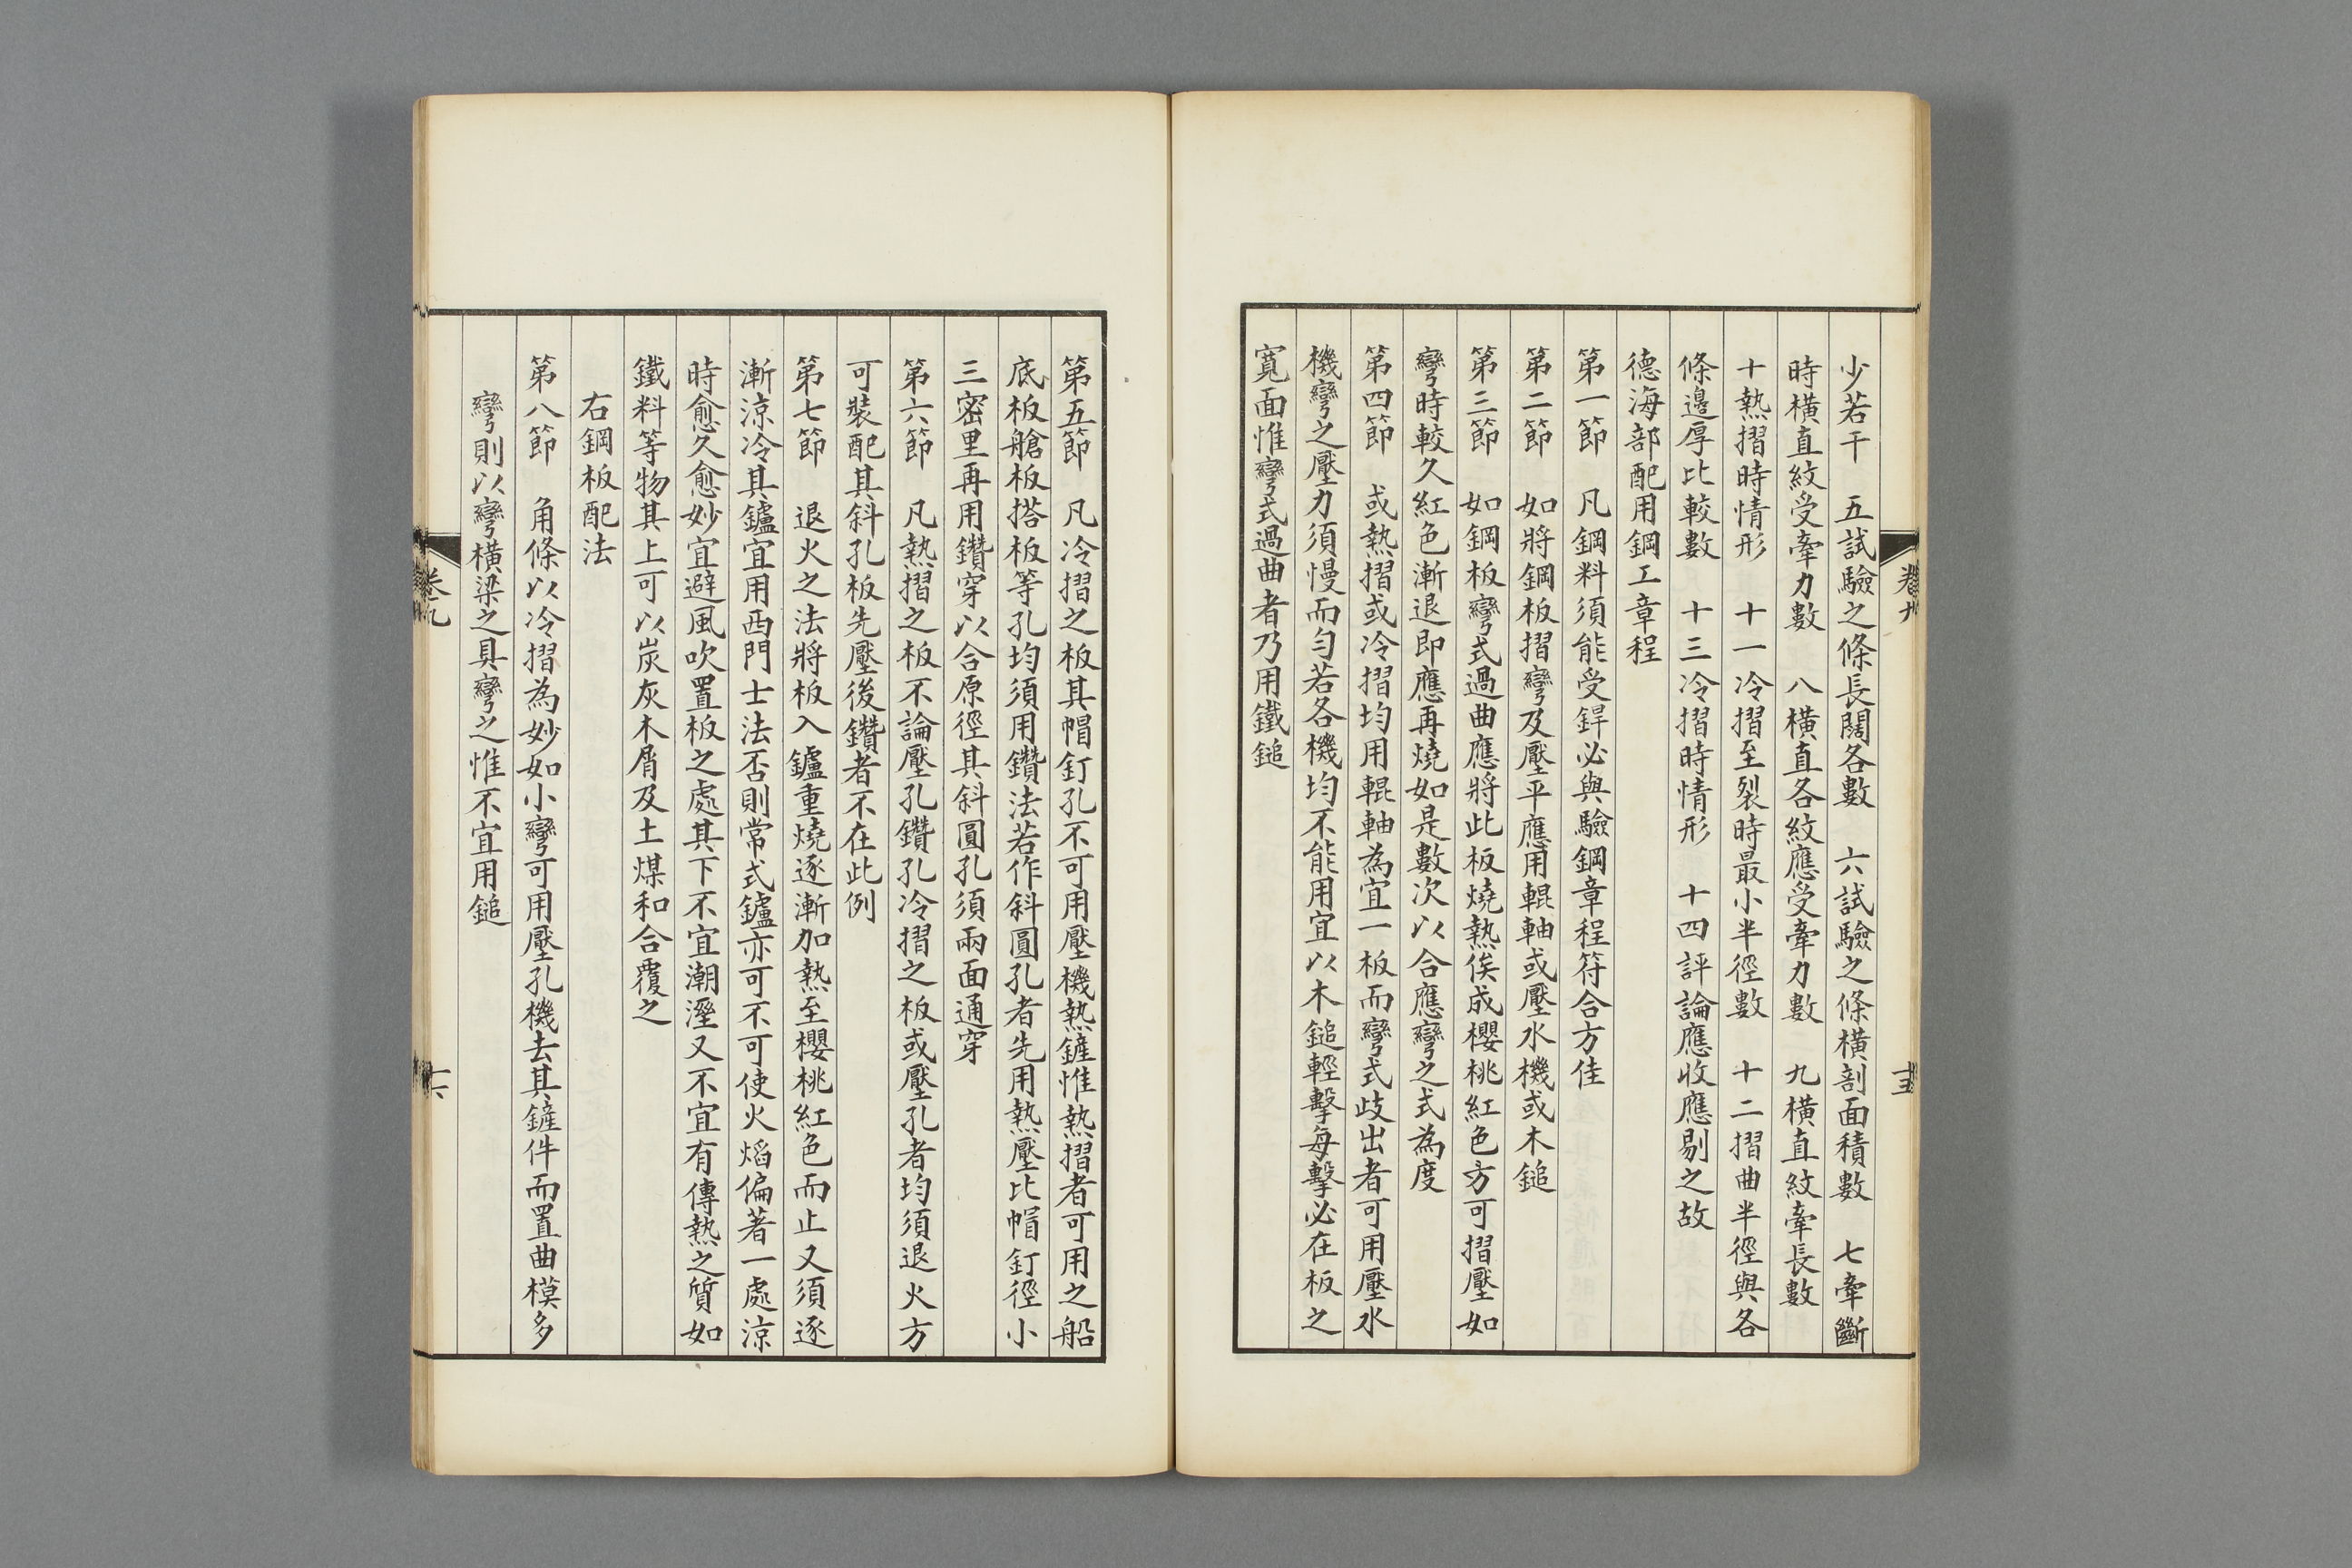 少若干　五試驗之條長闊各數　六試驗之條橫剖面積數　七牽斷
時橫直紋受牽力數　八橫直各紋應受牽力數　九橫直紋牽長數
十熱摺時情形　十一冷摺至裂時最小半徑數　十二摺曲半徑與各
條邊厚比較數　十三冷摺時情形　十四評論應收應剔之故
德海部配用鋼工章程
第一節　凡鋼料須能受銲必與驗鋼章程符合方佳
第二節　如將鋼板摺彎及壓平應用輥軸或壓水機或木鎚
第三節　如鋼板彎式過曲應將此板燒熱俟成櫻桃紅色方可摺壓如
彎時較久紅色漸退即應再燒如是數次以合應彎之式為度
第四節　或熱摺或冷摺均用輥軸為宜一板而彎式歧出者可用壓水
機彎之壓力須慢而勻若各機均不能用宜以木鎚輕擊每擊必在板之
寬面惟彎式過曲者乃用鐵鎚
第五節　凡冷摺之板其帽釘孔不可用壓機熱鏟惟熱摺者可用之船
底板艙板搭板等孔均須用鑽法若作斜圓孔者先用熱壓比帽釘徑小
三密里再用鑽穿以合原徑其斜圓孔須兩面通穿
第六節　凡熱摺之板不論壓孔鑽孔冷摺之板或壓孔者均須退火方
可裝配其斜孔板先壓後鑽者不在此例
第七節　退火之法將板入鑪重燒逐漸加熱至櫻桃紅色而止又須逐
漸涼冷其鑪宜用西門士法否則常式鑪亦可不可使火焰偏著一處涼
時愈久愈妙宜避風吹置板之處其下不宜潮溼又不宜有傳熱之質如
鐵料等物其上可以炭灰木屑及土煤和合覆之
右鋼板配法
第八節　角條以冷摺為妙如小彎可用壓孔機去其鏟件而置曲模多
彎則以彎橫梁之具彎之惟不宜用鎚
卷九
十六